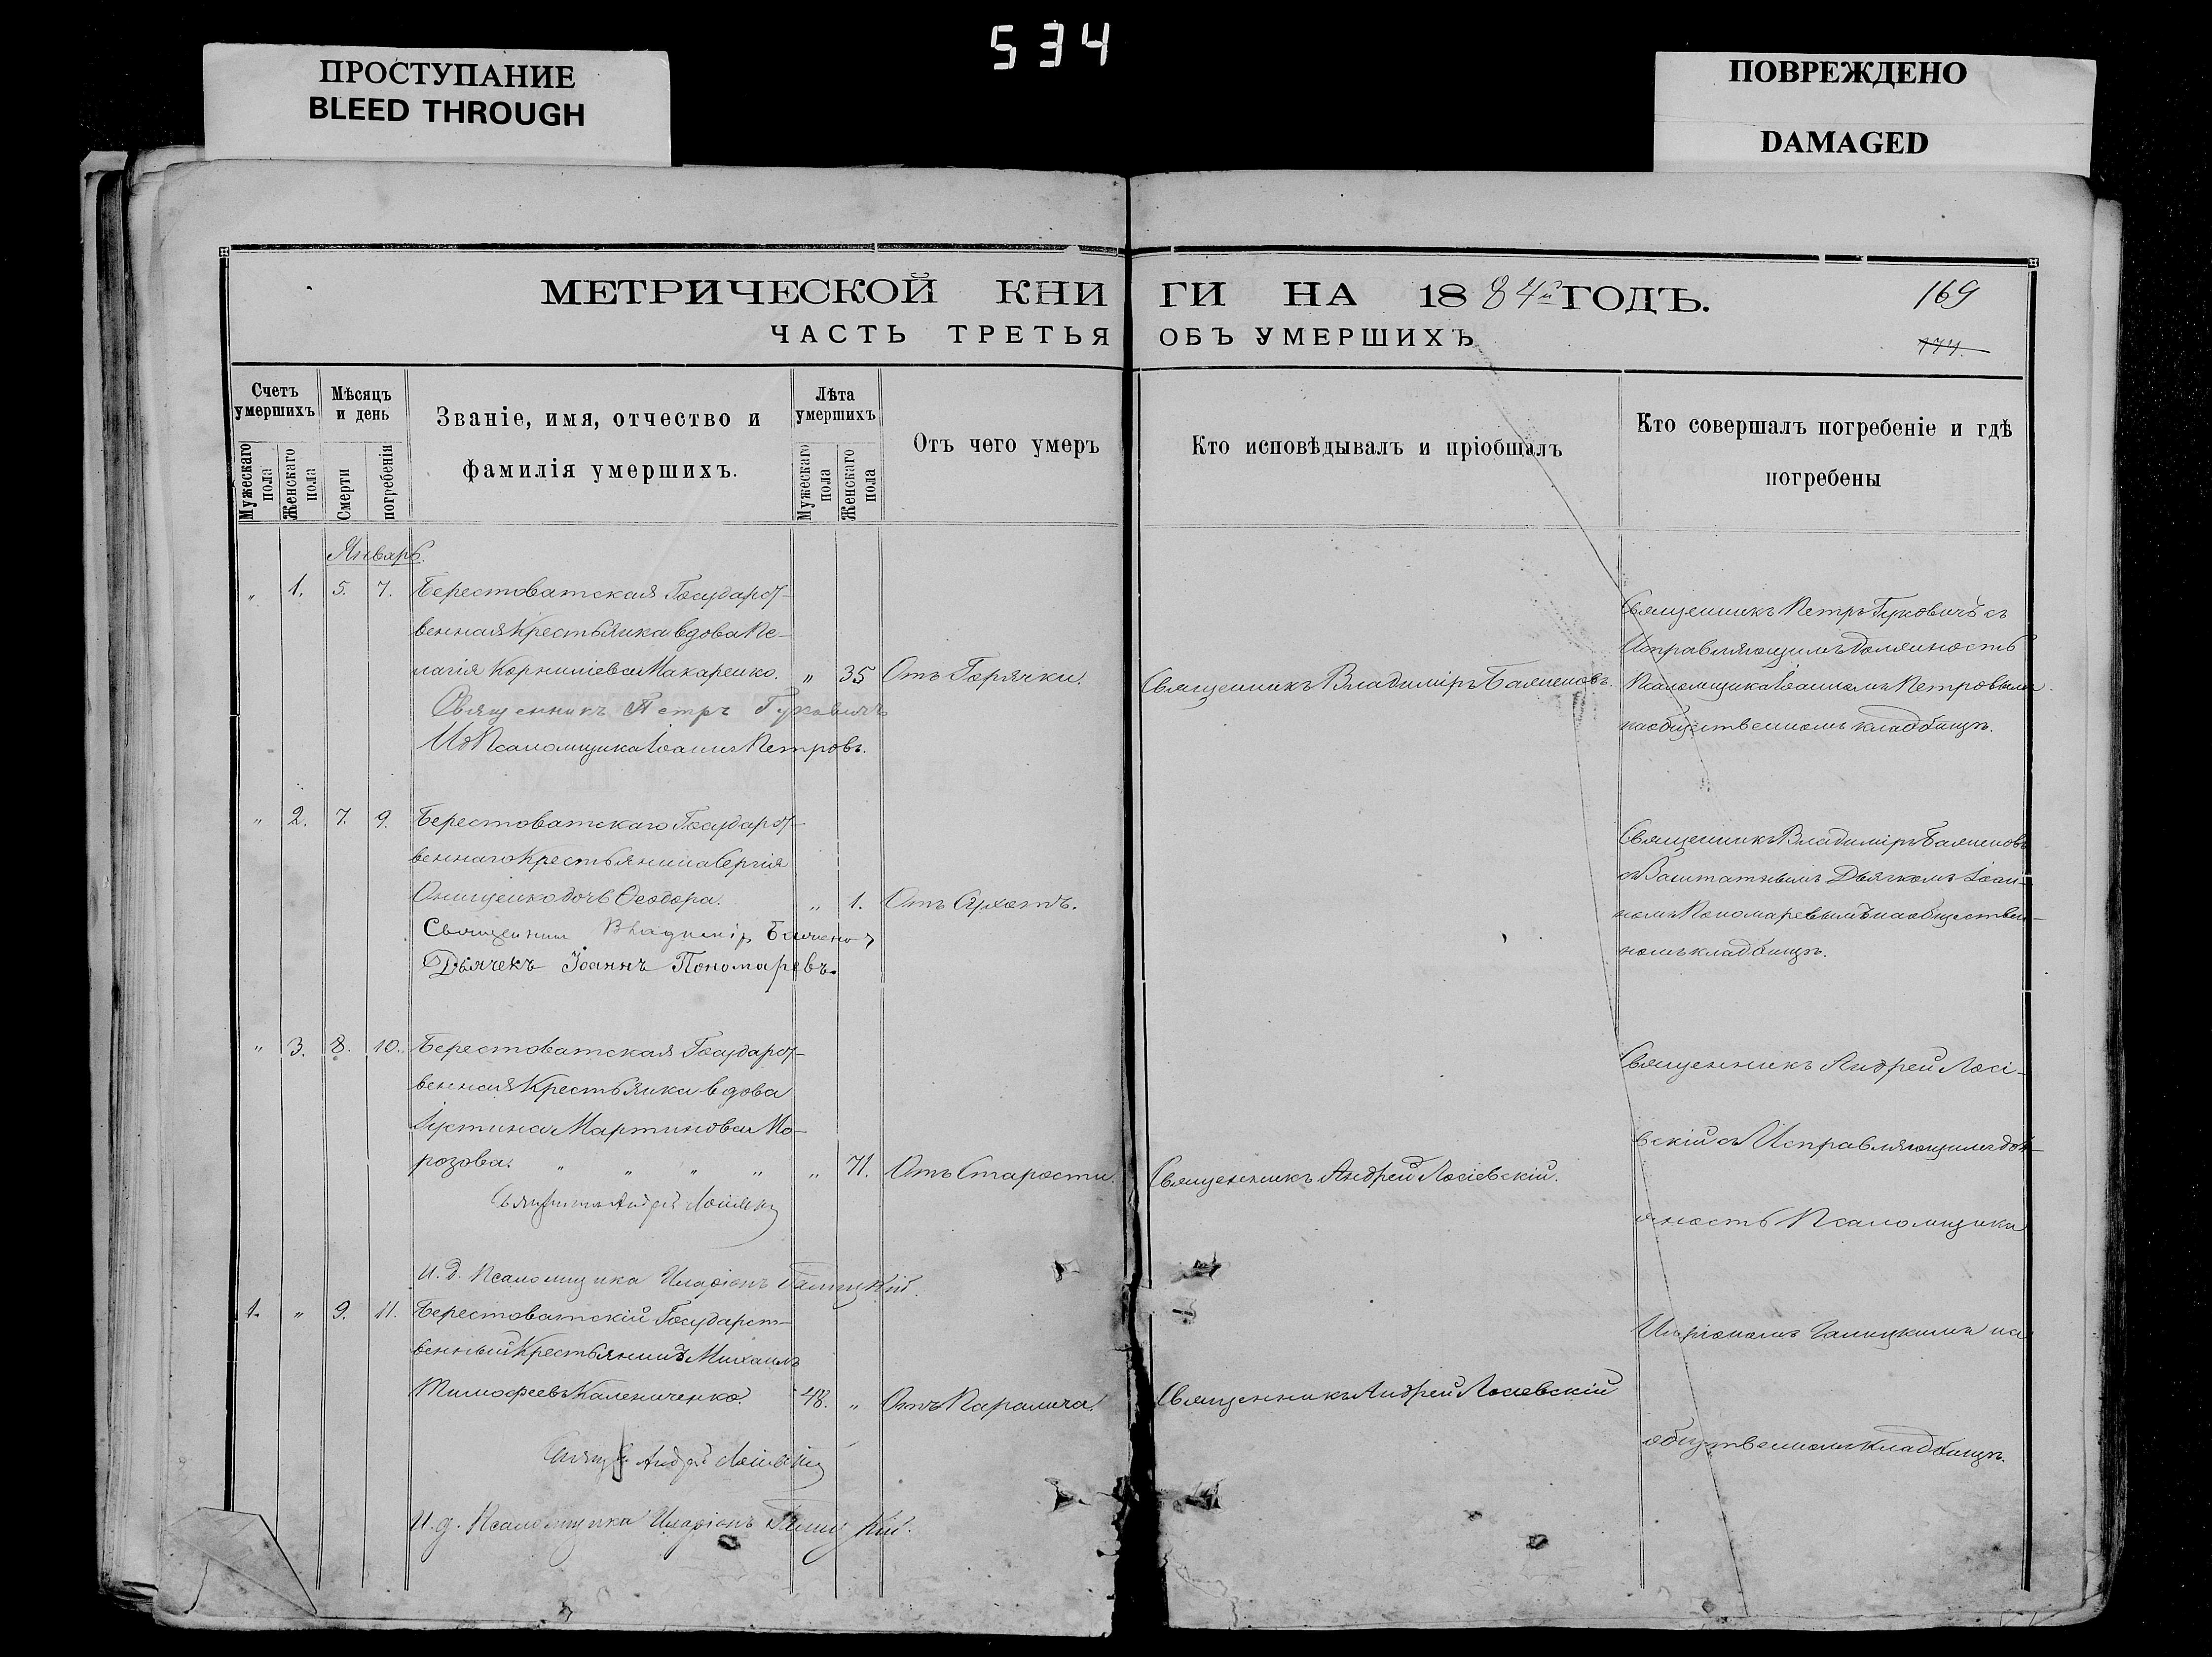 534
ПРОСТУПАНИЕ
BLEED THROUGH
ПОВРЕЖДЕНО
DAMAGED
МЕТРИЧЕСКОЙ КНИ ГИ НА 1884й ГОДЪ.
169
ЧАСТЬ ТРЕТЬЯ ОБЪ УМЕРШИХЪ
Счетъ умершихъ
Мужескаго пола
Женскаго пола
Мѣсяцъ и день
Смерти
погребенія
Званіе, имя, отчество и
фамилія умершихъ.
Лѣта умершихъ
Мужескаго пола
Женскаго пола
Отъ чего умеръ
Кто исповѣдывалъ и пріобщалъ
Кто совершалъ погребеніе и гдѣ
погребены
Январь.
„ 1. 5. 7. Берестоватская Государст-
венная Крестьянка вдова Пе-
лагія Корниліева Макаренко. „ 35 Отъ Горячки.
Священникъ Петръ Гуковичъ
Ид Псаломщика Іоаннъ Петровъ.
Священникъ Владиміръ
Священникъ Петръ Гуковичъ съ
Исправляющимъ должность
Псаломщика Іоанномъ Петровымъ
на общественномъ кладбищѣ.
„ 2. 7. 9. Берестоватскаго Государст-
веннаго Крестьянина Сергія
Онищенко дочь Ѳеодора. „ 1. Отъ Сухотъ.
Священник Владимір
Дьячекъ Іоаннъ Пономаревъ.
Священникъ Владиміръ
съ Заштатнымъ Дьячкомъ Іоан-
номъ Пономаревымъ на обществен-
номъ кладбищѣ.
„ 3. 8. 10. Берестоватская Государст-
венная Крестьянка вдова
Іустина Мартинова Мо-
розова. „ „ „ „ „ 71. Отъ Старости.
Священникъ Андрей Лосіевскій
И.д. Псаломщика Иларіонъ Галицкій.
Священникъ Андрей Лосіевскій.
Священникъ Андрей Лосі-
евскій съ Исправляющимъ дол-
жность Псаломщика
Иларіономъ Галицкимъ на
общественномъ кладбищѣ.
1. „ 9. 11. Берестоватскій Государст-
венный Крестьянинъ Михаилъ
Тимофеевъ Калениченко. 48. „ Отъ Паралича.
Андрей Лосіевскій
И.д. Псаломщика Иларіонъ Галицкій.
Священникъ Андрей Лосіевскій